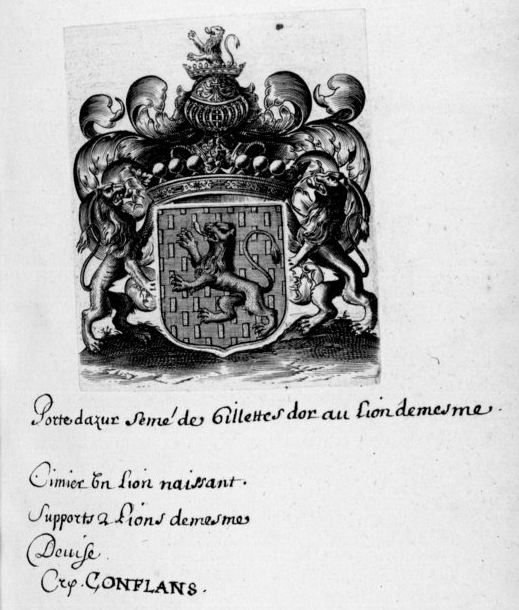 Porte dazur semé de Billettes dor au Lion demesme.
Cimier Un Lion naissant.
Supports 2 Lions demesme
Deuise.
Cry. CONFLANS.